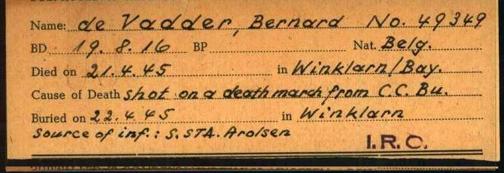 Name: de Vadder, Bernard No. 49349
BD 19.8.16 BP Nat. Belg.
Died on 21.4.45 in Winklarn/Bay.
Cause of Death shot on a deathmarch from C.C. Bu.
Buried on 22.4.45 in Winklarn
Source of inf.: S.STA. Arolsen
I.R.O.